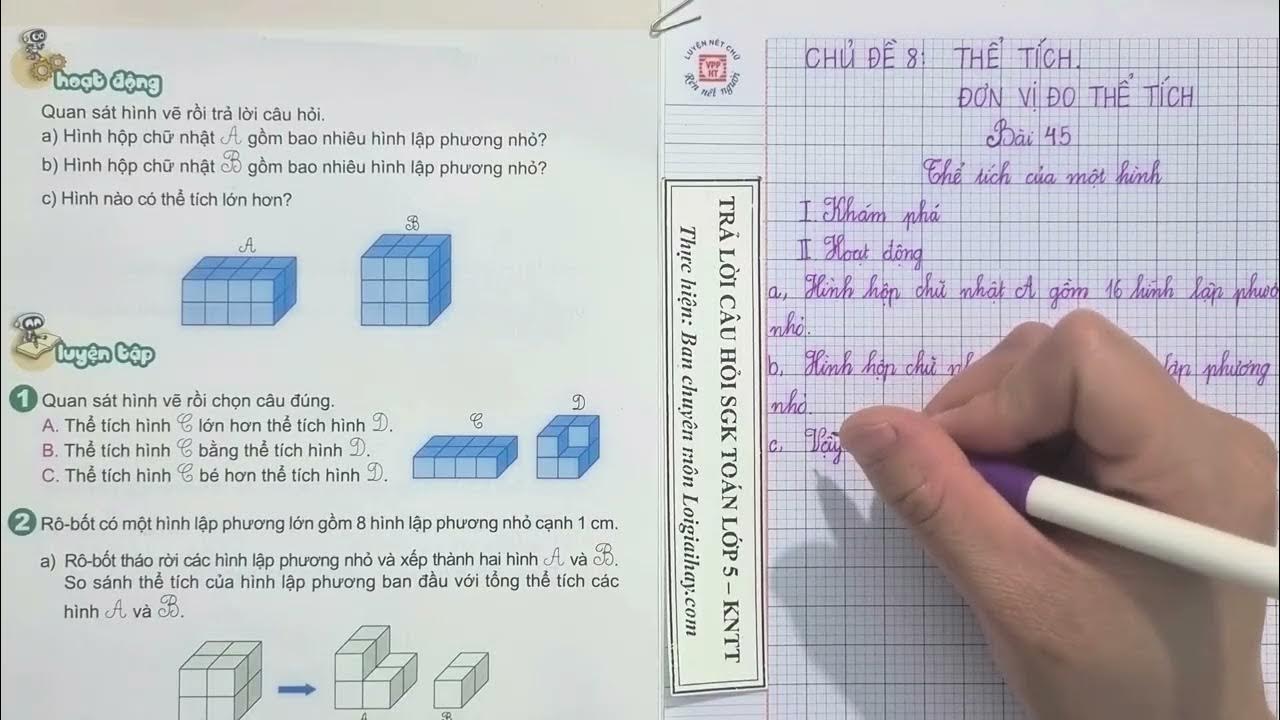 hoạt động
Quan sát hình vẽ rồi trả lời câu hỏi.
a) Hình hộp chữ nhật A gồm bao nhiêu hình lập phương nhỏ?
b) Hình hộp chữ nhật B gồm bao nhiêu hình lập phương nhỏ?
c) Hình nào có thể tích lớn hơn?
A
B
luyện tập
1 Quan sát hình vẽ rồi chọn câu đúng.
A. Thể tích hình C lớn hơn thể tích hình D.
B. Thể tích hình C bằng thể tích hình D.
C. Thể tích hình C bé hơn thể tích hình D.
C
D
2 Rô-bốt có một hình lập phương lớn gồm 8 hình lập phương nhỏ cạnh 1 cm.
a) Rô-bốt tháo rời các hình lập phương nhỏ và xếp thành hai hình A và B.
So sánh thể tích của hình lập phương ban đầu với tổng thể tích các
hình A và B.
A
B
LUYỆN NÉT CHỮ
VPP
HT
Rèn nết người
TRẢ LỜI CÂU HỎI SGK TOÁN LỚP 5 – KNTT
Thực hiện: Ban chuyên môn Loigiaihay.com
CHỦ ĐỀ 8: THỂ TÍCH.
ĐƠN VỊ ĐO THỂ TÍCH
Bài 45
Thể tích của một hình
I. Khám phá
II. Hoạt động
a, Hình hộp chữ nhật A gồm 16 hình lập phươ
nhỏ.
b, Hình hộp chữ nh lập phương
nhỏ.
c, Vậy